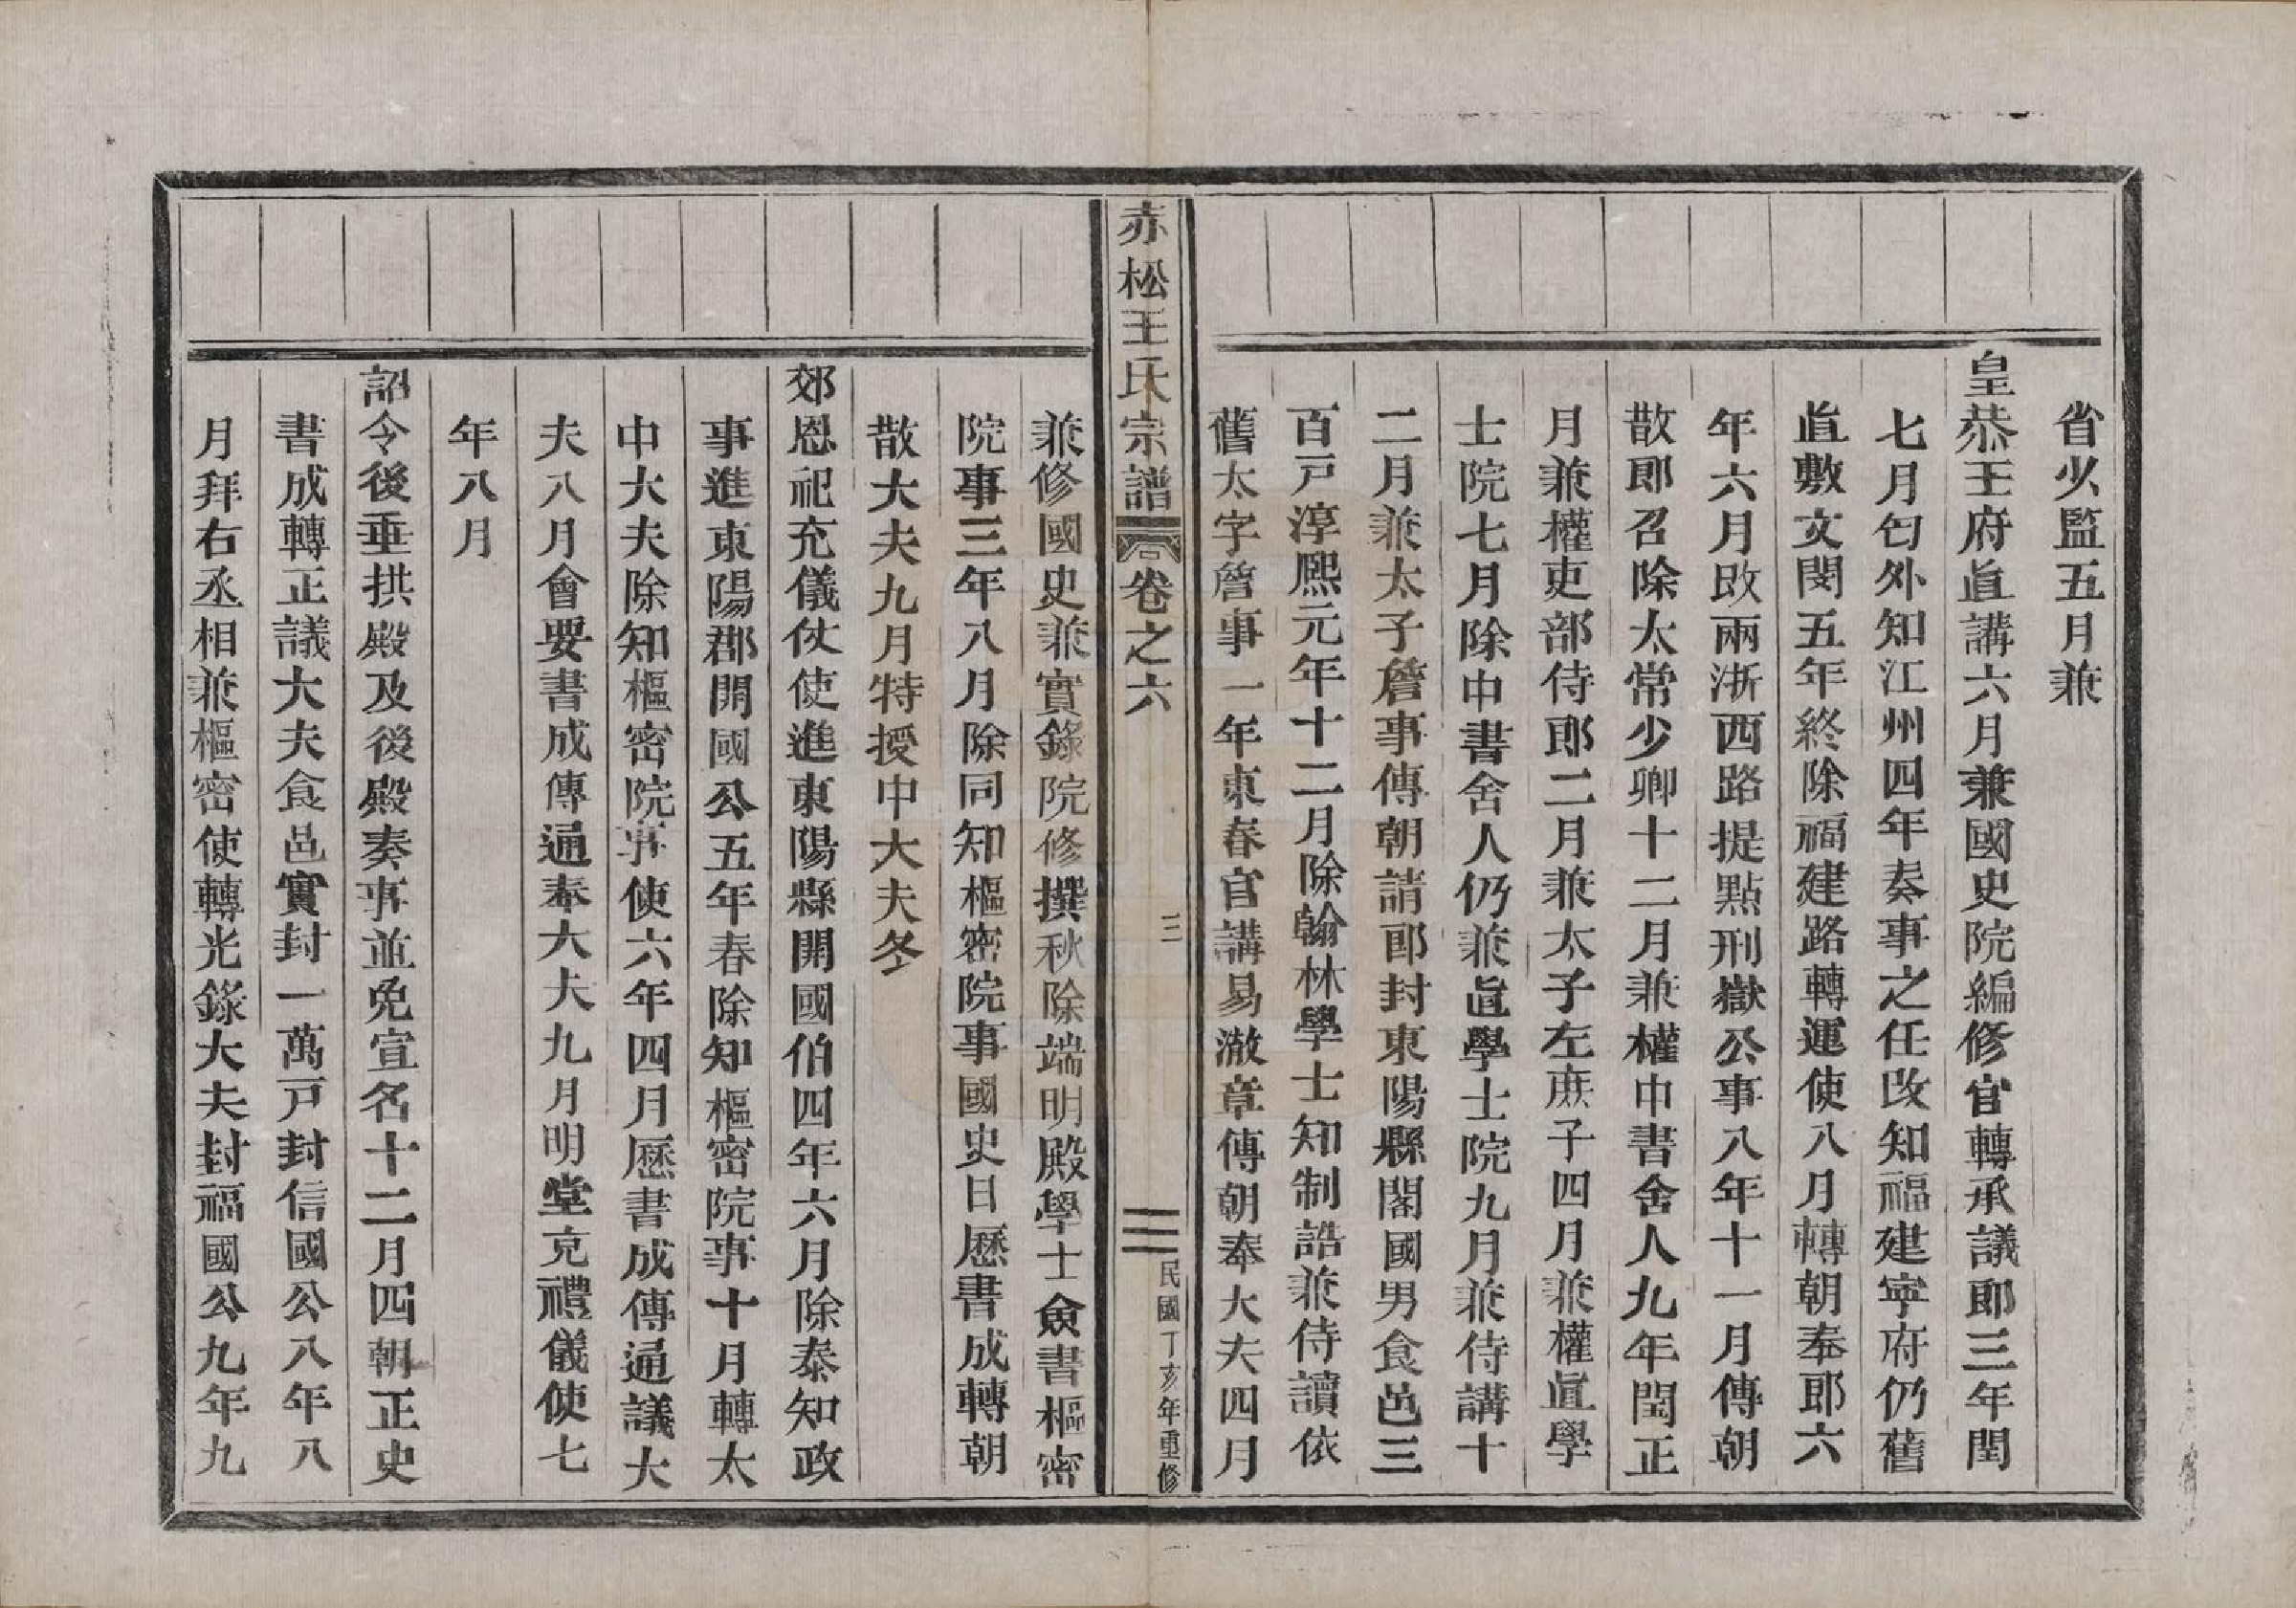 省少監五月兼
皇恭王府直講六月兼國史院編修官轉承議郎三年閏
七月匄外知江州四年奏事之任改知福建寧府仍舊
直敷文閔五年終除福建路轉運使八月轉朝奉郎六
年六月改兩浙西路提點刑嶽公事八年十一月傳朝
散郎召除太常少卿十二月兼權中書舍人九年閏正
月兼權吏部侍郎二月兼太子左庶子四月兼權直學
士院七月除中書舍人仍兼直學士院九月兼侍講十
二月兼太子詹事傳朝請郎封東陽縣閣國男食邑三
百戸淳熙元年十二月除翰林學士知制誥兼侍讀依
舊太字詹事一年東春官講易澈章傳朝奉大夫四月
赤松王氏宗譜 卷之六 三 三 民國丁亥年重修
兼修國史兼實錄院修撰秋除端明殿學士僉書樞密
院事三年八月除同知樞密院事國史日歷書成轉朝
散大夫九月特授中大夫冬
郊恩祀充儀仗使進東陽縣開國伯四年六月除泰知政
事進東陽郡開國公五年春除知樞密院事十月轉太
中大夫除知樞密院事使六年四月歷書成傳通議大
夫八月會要書成傳通奉大夫九月明堂充禮儀使七
年八月
詔令後垂拱殿及後殿奏事並免宣名十二月四朝正史
書成轉正議大夫食邑實封一萬戸封信國公八年八
月拜右丞相兼樞密使轉光錄大夫封福國公九年九